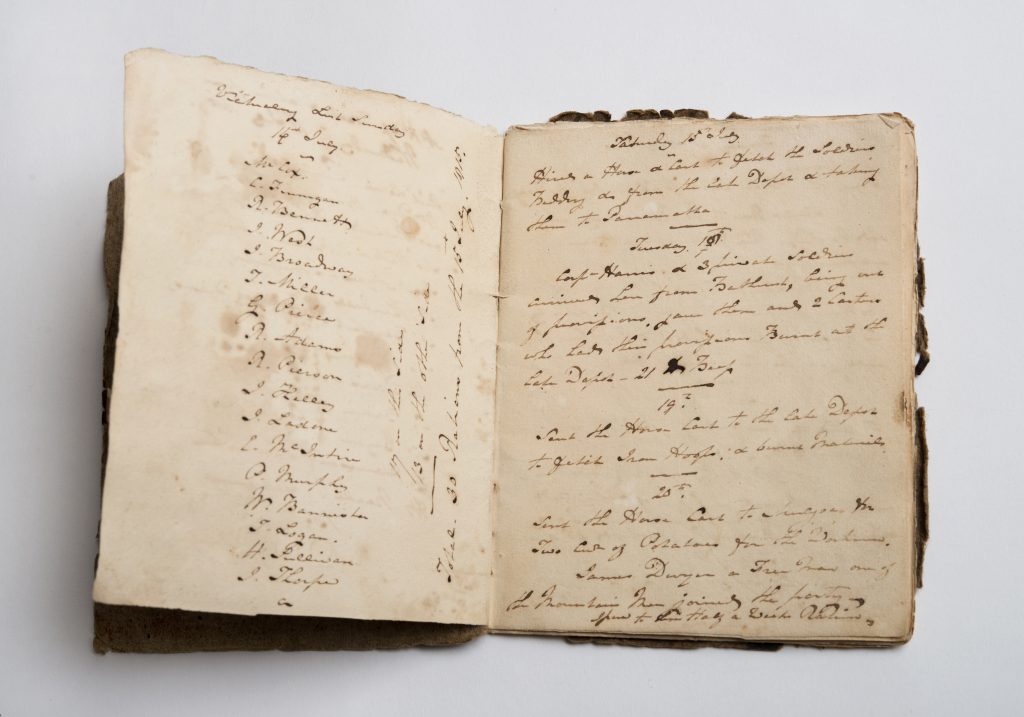 Victualling List Sunday
16th July
Mr Cox
L. Finnigan
R. Bennett
J. Wadh
J. Broadway
T. Miller
G. Peirce
R. Adams
R. Pierson
J. Kelley
J. Ladone
L. McIntire
P. Murphy
W. Bannister
T. Logan.
H. Sullivan
J. Thorpe
17 on this side
13 on the other side
Total. 30 Rations from the 15th July. 1815.
Saturday 15th July
Hired a Horse & Cart to fetch the Soldiers
Bedding &c from the late Depot & taking
them to Parramatta
Tuesday 18th
Corpl Harris & 3 private Soldiers
arrived here from Bathurst, being out
of provisions, gave them and 2 Carters
who had their provisions Burnt at the
late Depot - 21 lb Beef
19th
Sent the Horse Cart to the late Depot
to fetch Iron Hoops, & burnt Materials
20th
Sent the Horse Cart to for
Two Cwt of Potatoes for the Workmen.
James Dwyer a Free Man one of
the Mountain Men joined the party
to him Half a Weeks Ration.